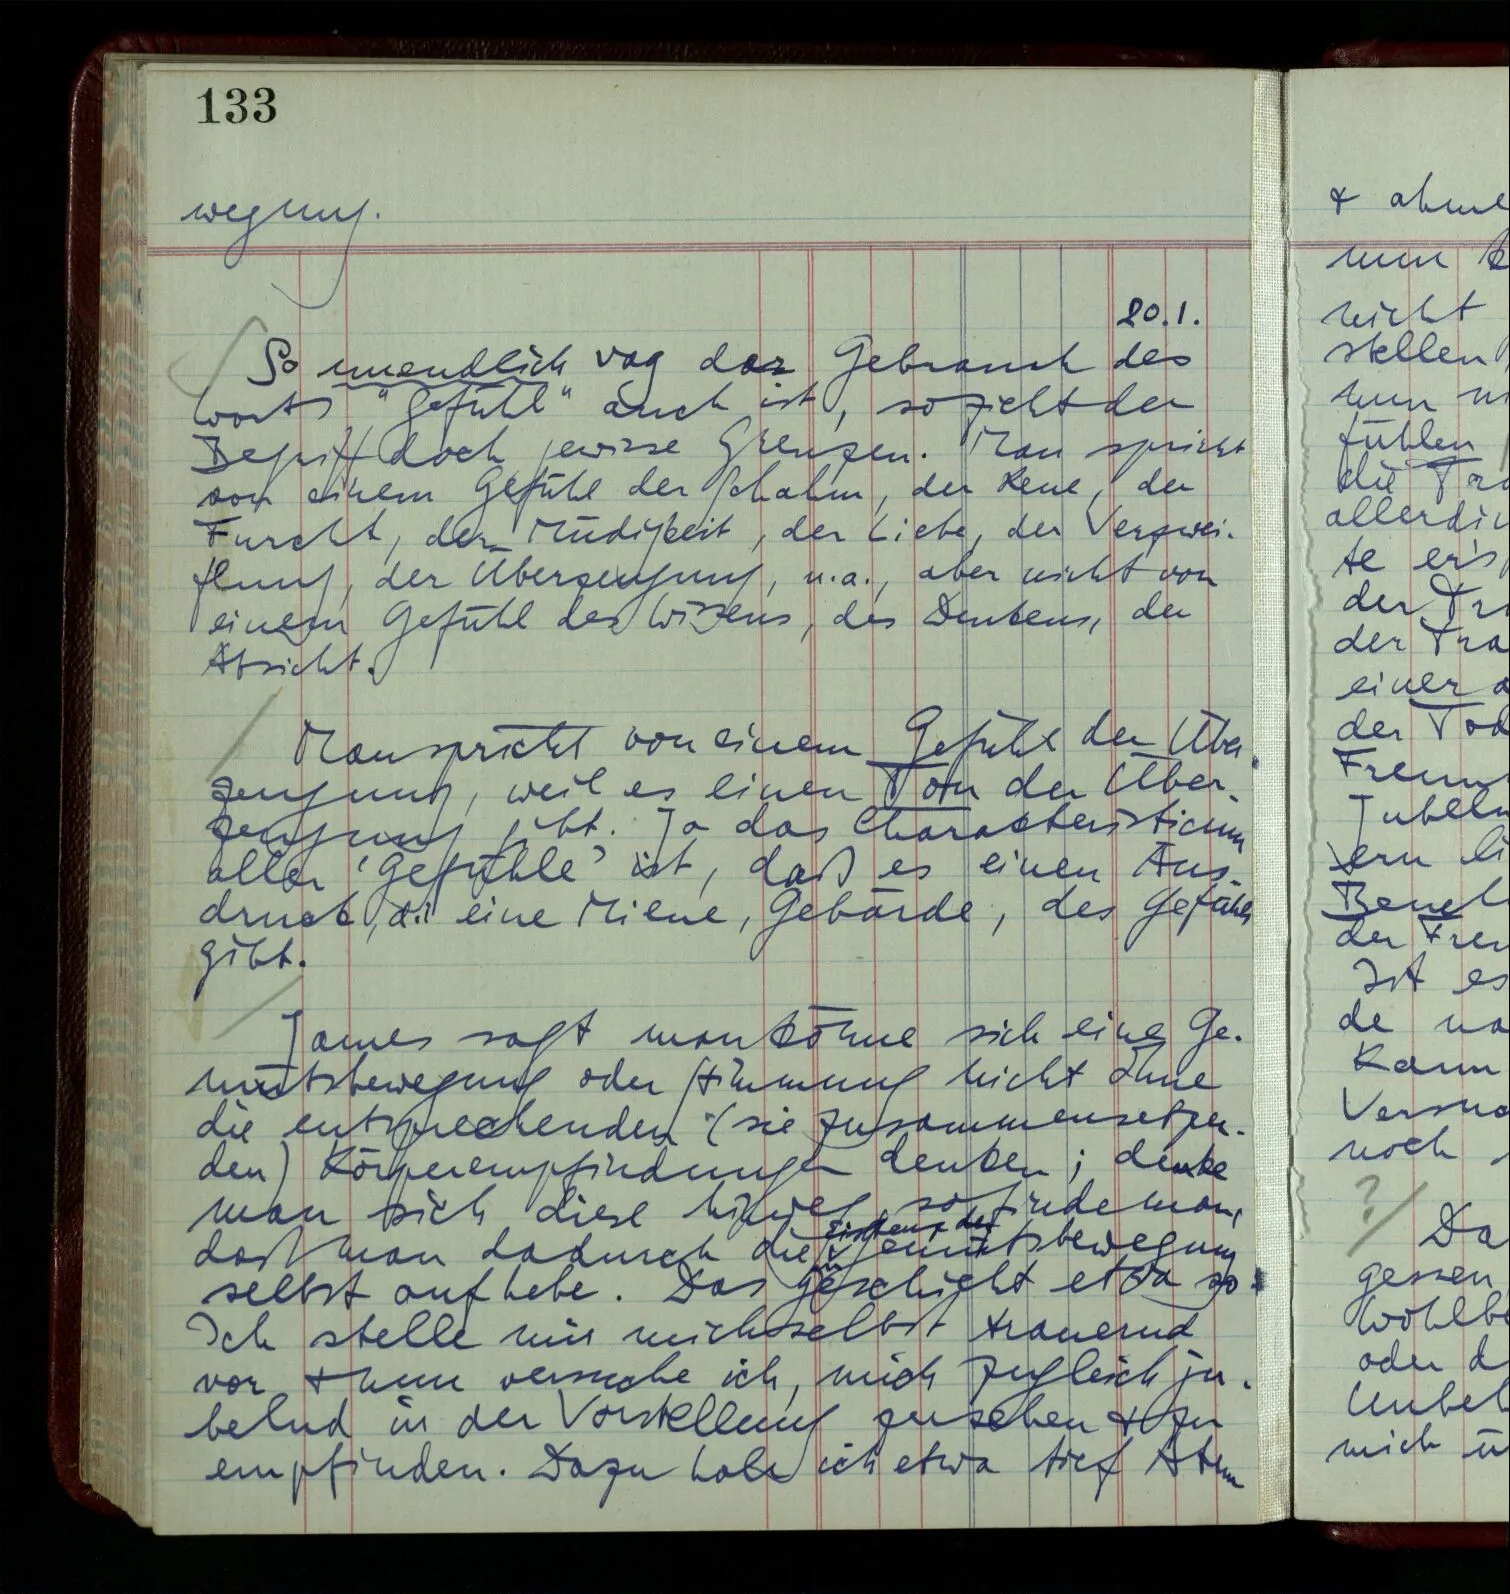 133
wegung.
20.1.
So unendlich vag der Gebrauch des
Worts "Gefühl" auch ist, so zieht der
Begriff doch gewisse Grenzen. Man spricht
von einem Gefühl der Scham, der Reue, der
Furcht, der Müdigkeit, der Liebe, der Verzwei-
flung, der Überzeugung, u.a., aber nicht von
einem Gefühl des Wissens, des Denkens, der
Absicht.
Man spricht von einem Gefühl der Über-
zeugung, weil es einen Ton der Über-
zeugung gibt. Ja das Charakteristicum
aller 'Gefühle' ist, daß es einen Aus-
druck, eine Miene, Gebärde, des Gefühls
gibt.
James sagt man könne sich eine Ge-
mütsbewegung oder Stimmung nicht ohne
die entsprechenden (sie zusammensetzen-
den) Körperempfindungen denken; denke
man sich diese hinweg so finde man,
daß man dadurch die Existenz der Gemütsbewegung
selbst aufhebe. Das geschieht etwa so:
Ich stelle mir mich selbst trauernd
vor & nun versuche ich, mich zugleich ju-
belnd in der Vorstellung zu sehen & zu
empfinden. Dazu hole ich etwa tief Atem
&
nun
nicht
stellen
nun
fühlen
die
te er's
der
der
einer
der
ern
der
Ist es
de
Kann
noch
?
Da
gessen
oder
mich